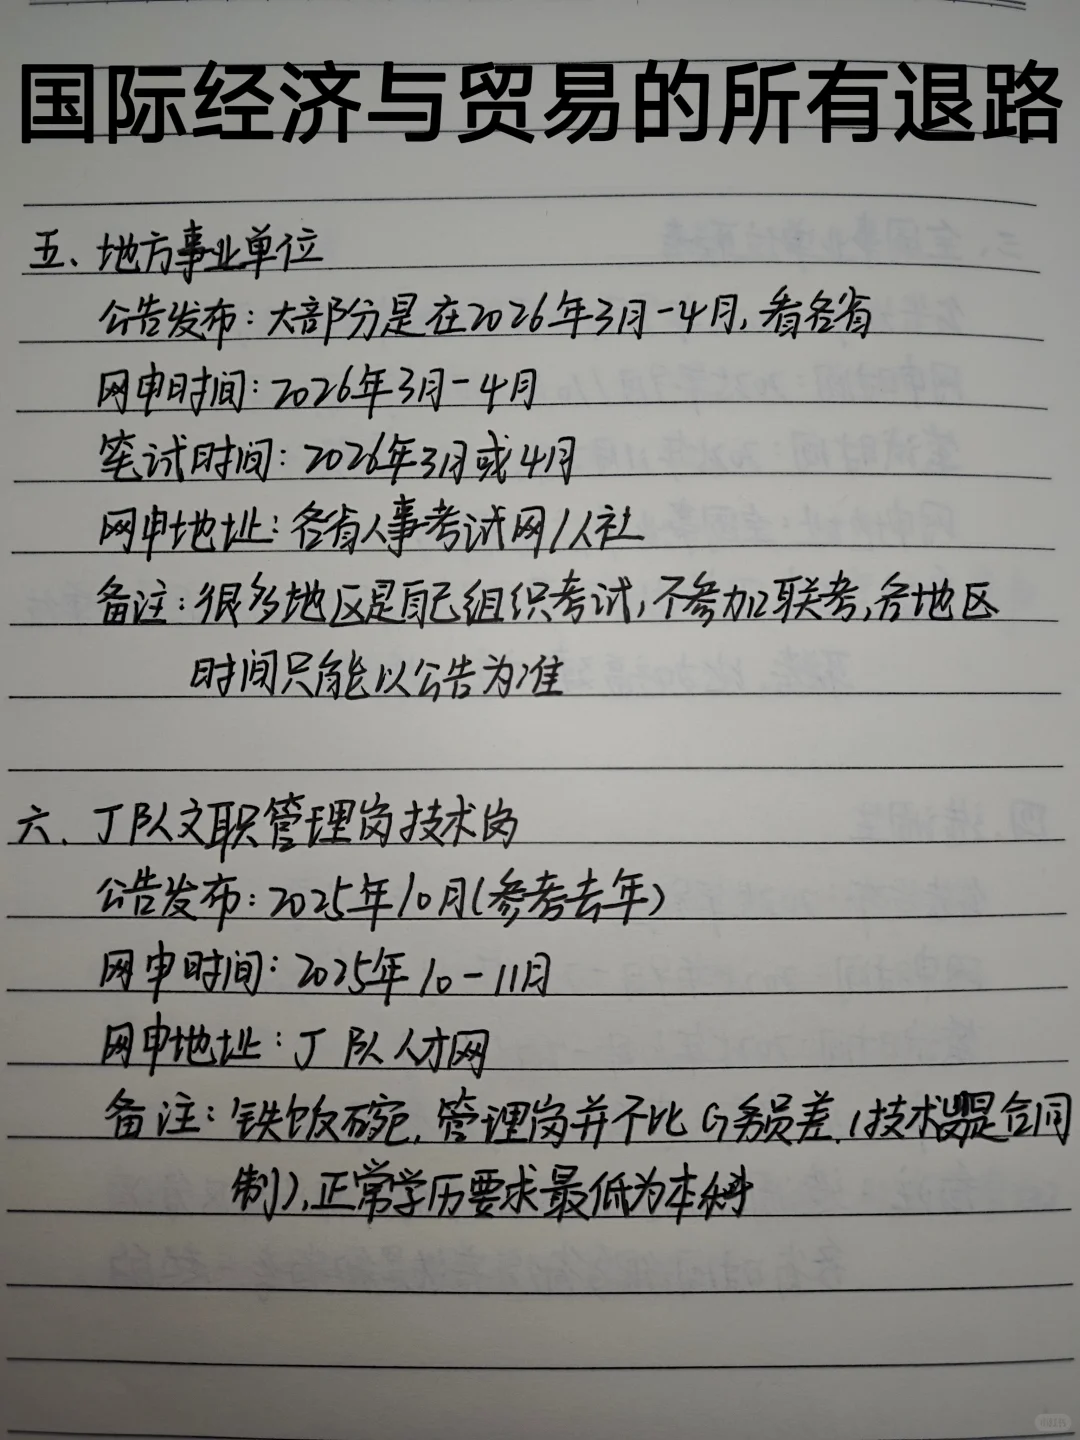 国际经济与贸易的所有退路
五、地方事业单位
公告发布：大部分是在2026年3月-4月，看各省
网申时间：2026年3月-4月
笔试时间：2026年3月或4月
网申地址：各省人事考试网/人社
备注：很多地区是自己组织考试，不参加联考，各地区
时间只能以公告为准
六、J队文职管理岗技术岗
公告发布：2025年10月(参考去年)
网申时间：2025年10-11月
网申地址：J队人才网
备注：铁饭碗，管理岗并不比G务员差，(技术岗是合同
制)，正常学历要求最低为本科
小红书